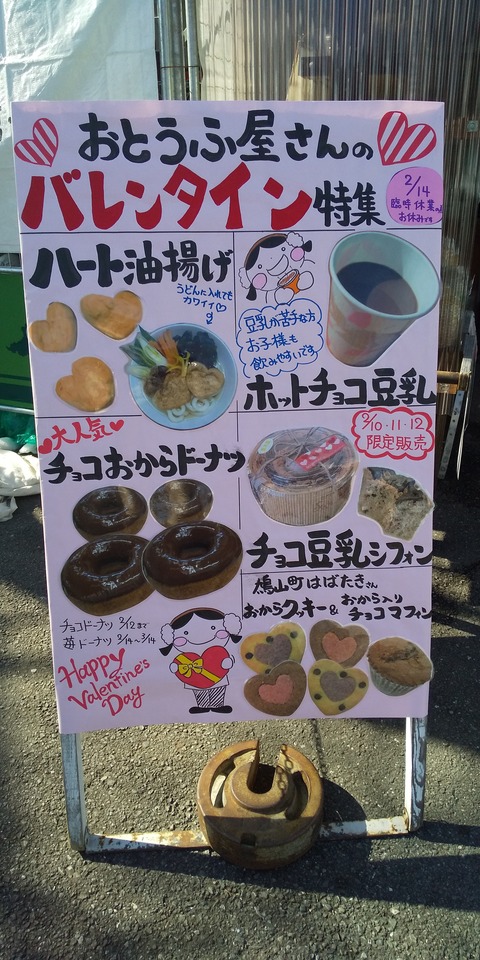 おとうふ屋さんの
バレンタイン特集
2/14
臨時休業の
お休みです
ハート油揚げ
うどんに入れても
カワイイ♡
豆乳が苦手な方
お子様も
飲みやすいです
ホットチョコ豆乳
♥大人気♥
チョコおからドーナツ
2/10・11・12
限定販売
チョコ豆乳シフォン
鳩山町はばたきさん
おからクッキー&
おから入り
チョコマフィン
チョコドーナツ 2/12まで
苺ドーナツ 2/14〜3/14
Happy
Valentine's
Day